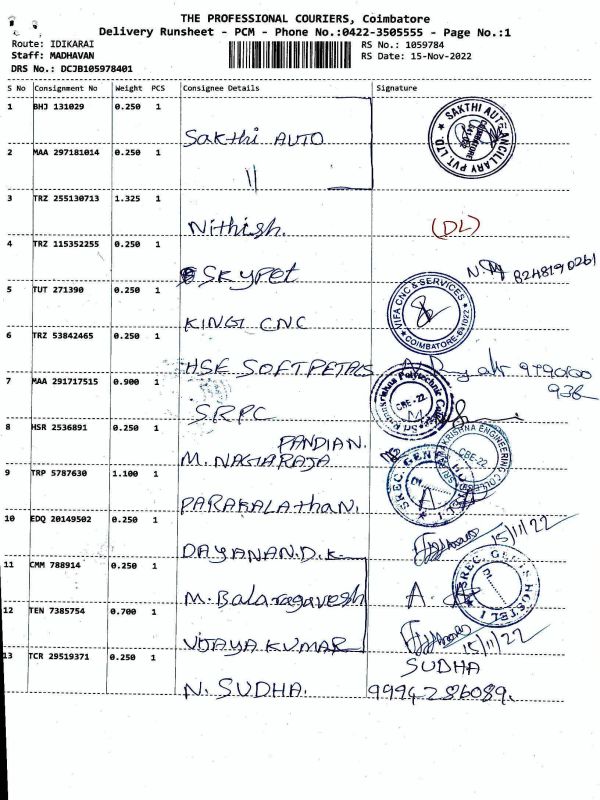 THE PROFESSIONAL COURIERS, Coimbatore
Delivery Runsheet - PCM - Phone No.:0422-3505555 - Page No.:1
Route: IDIKARAI
RS No.: 1059784
Staff: MADHAVAN
RS Date: 15-Nov-2022
DRS No.: DCJB105978401
S No Consignment No Weight PCS Consignee Details Signature
1 BHJ 131029 0.250 1 Sakthi AUTO
SAKTHI AUTO ANCILLARY PVT. LTD
2 MAA 297181014 0.250 1 "
3 TRZ 255130713 1.325 1 Nithish. (DL)
4 TRZ 115352255 0.250 1 SKYPET 8248190261
5 TUT 271390 0.250 1 KING CNC
VIFA CNC & SERVICES
COIMBATORE-641022
6 TRZ 53842465 0.250 1 HSE SOFTPETALS
7 MAA 291717515 0.900 1 SRPC
CBE-22
8 HSR 2536891 0.250 1 M. NAGARAJA PANDIAN.
CBE-22
9 TRP 5787630 1.100 1 PARAKALATHAN.
SREC GENTS HOSTEL
10 EDQ 20149502 0.250 1 DAYANAND.K. 15/11/22
11 CMM 788914 0.250 1 M. Balaragavesh A.
SREC GENTS HOSTEL 1
12 TEN 7385754 0.700 1 VIJAYA KUMAR 15/11/22
13 TCR 29519371 0.250 1 N. SUDHA. SUDHA
9994286089.